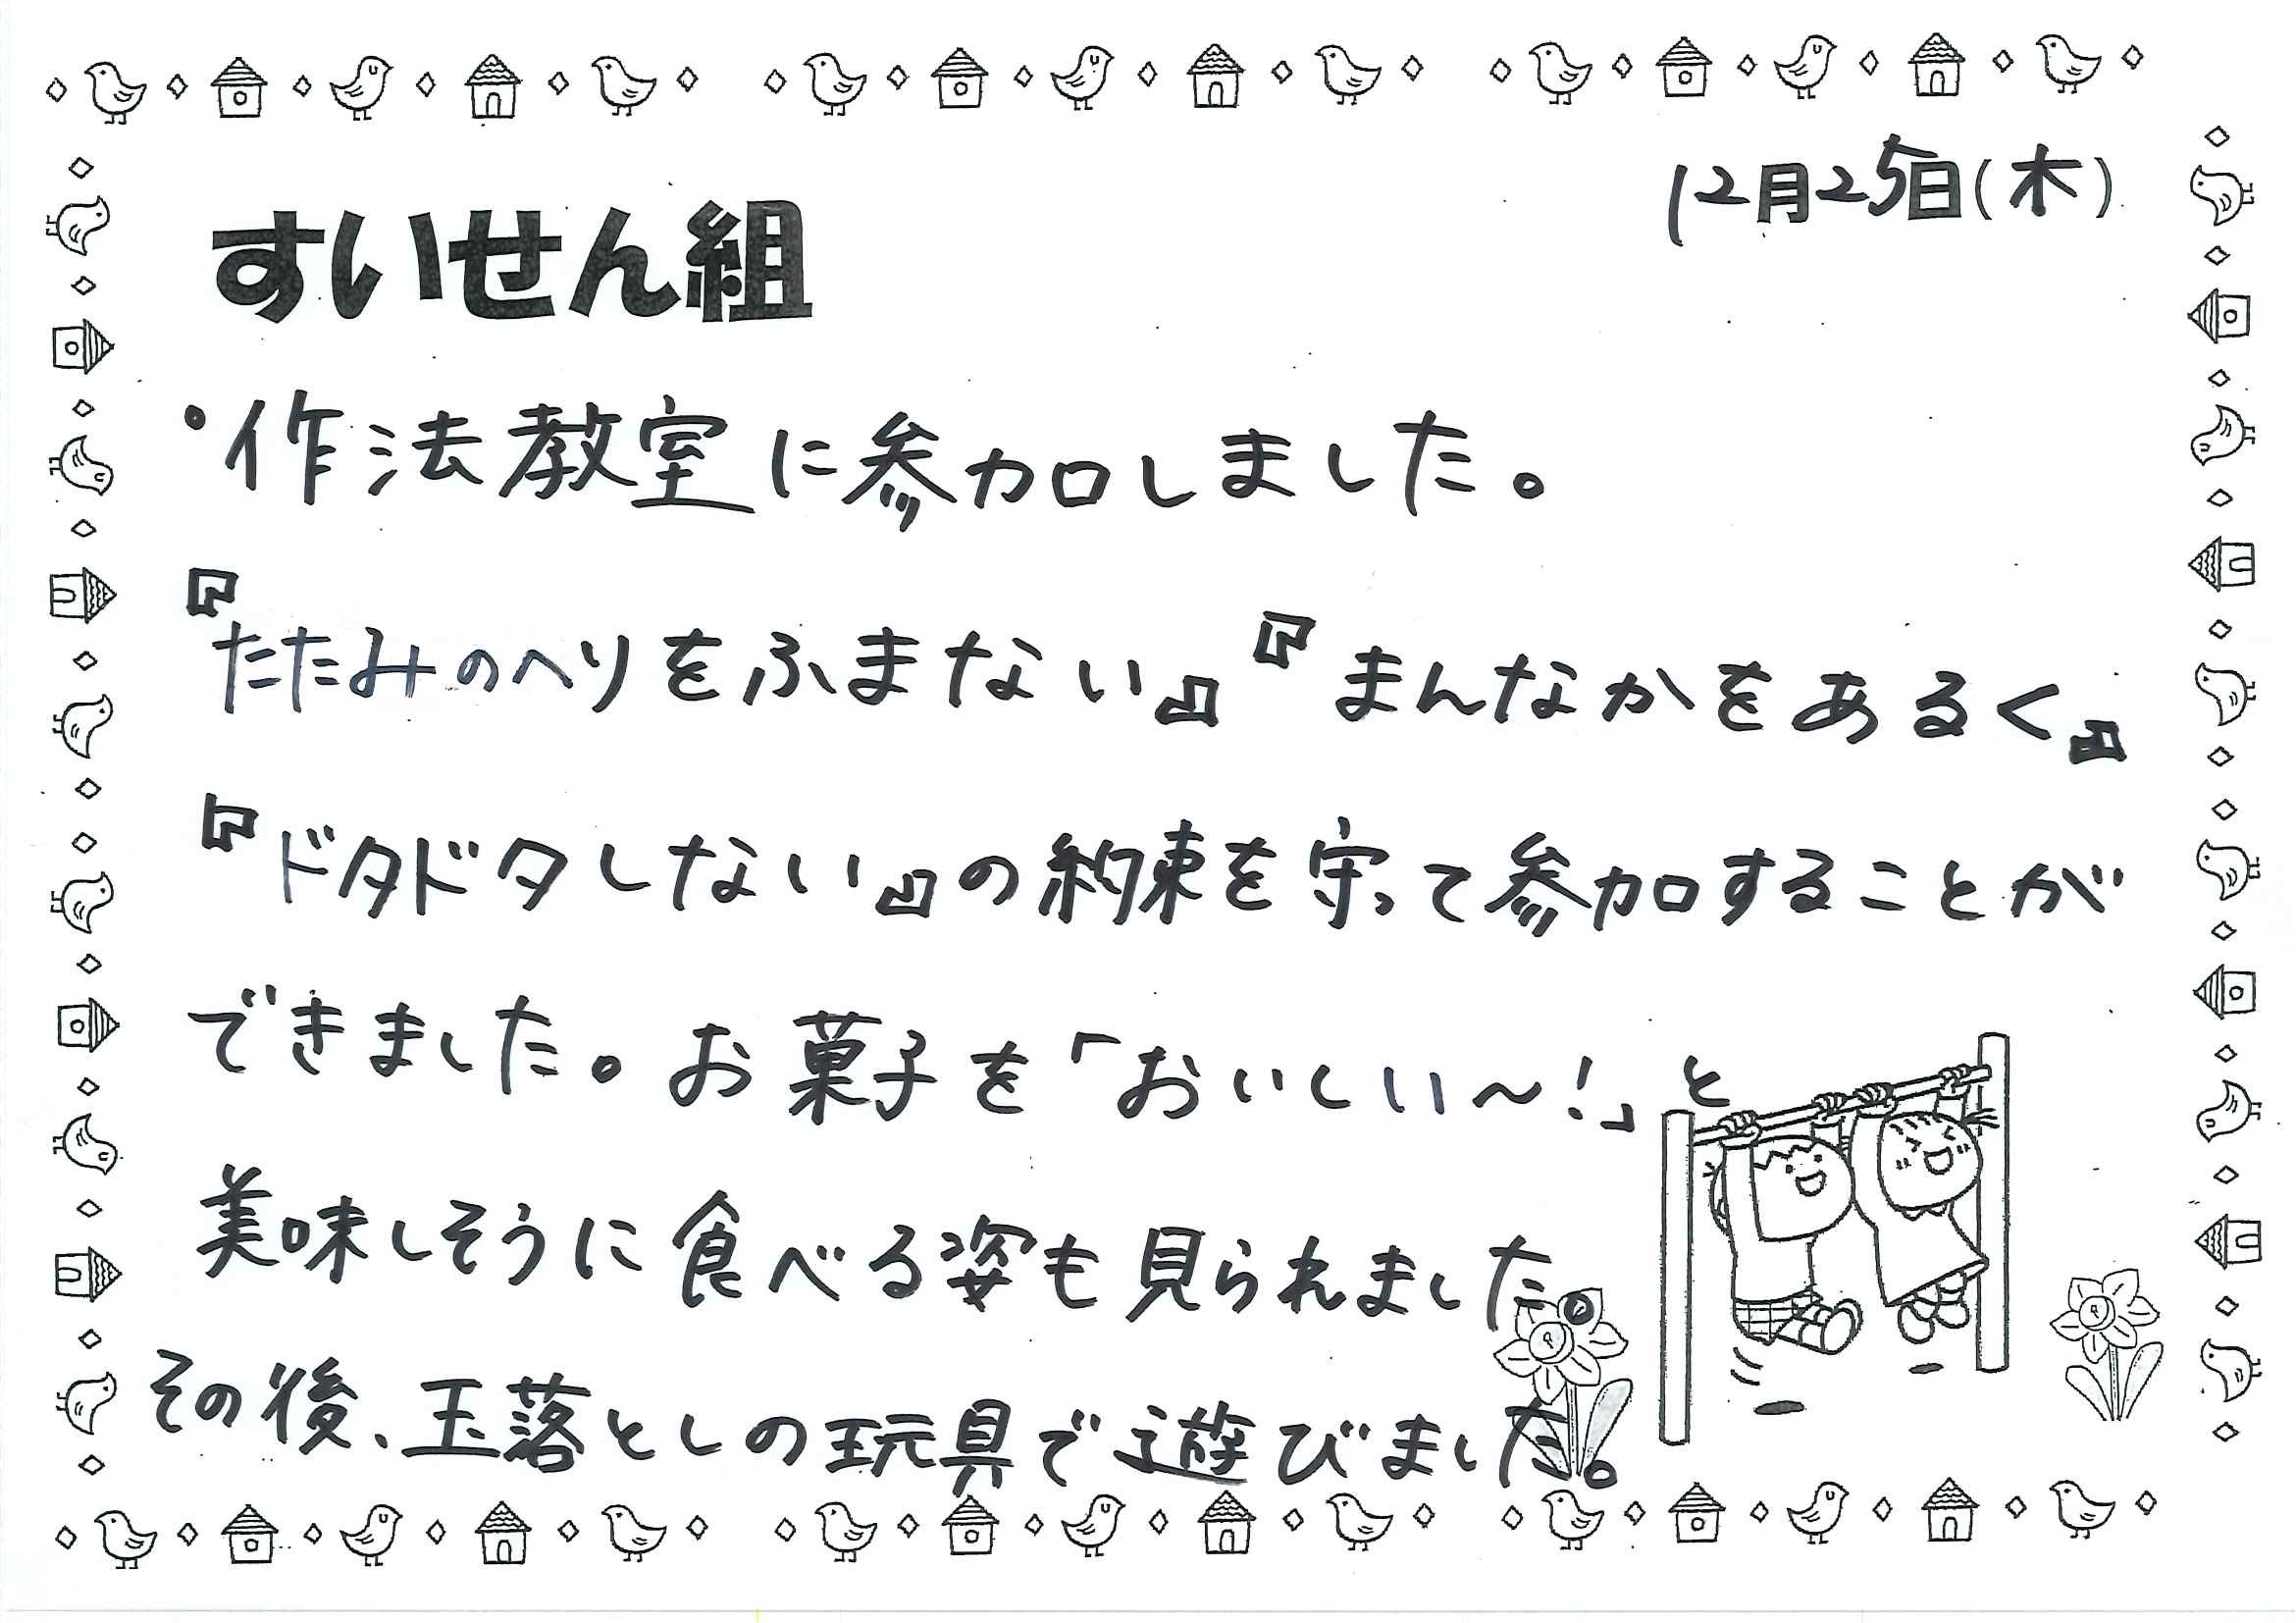 12月25日(木)
すいせん組
・作法教室に参加しました。
『たたみのヘリをふまない』『まんなかをあるく』
『ドタドタしない』の約束を守って参加することが
できました。お菓子を「おいしい〜!」と
美味しそうに食べる姿も見られました。
その後、玉落としの玩具で遊びました。